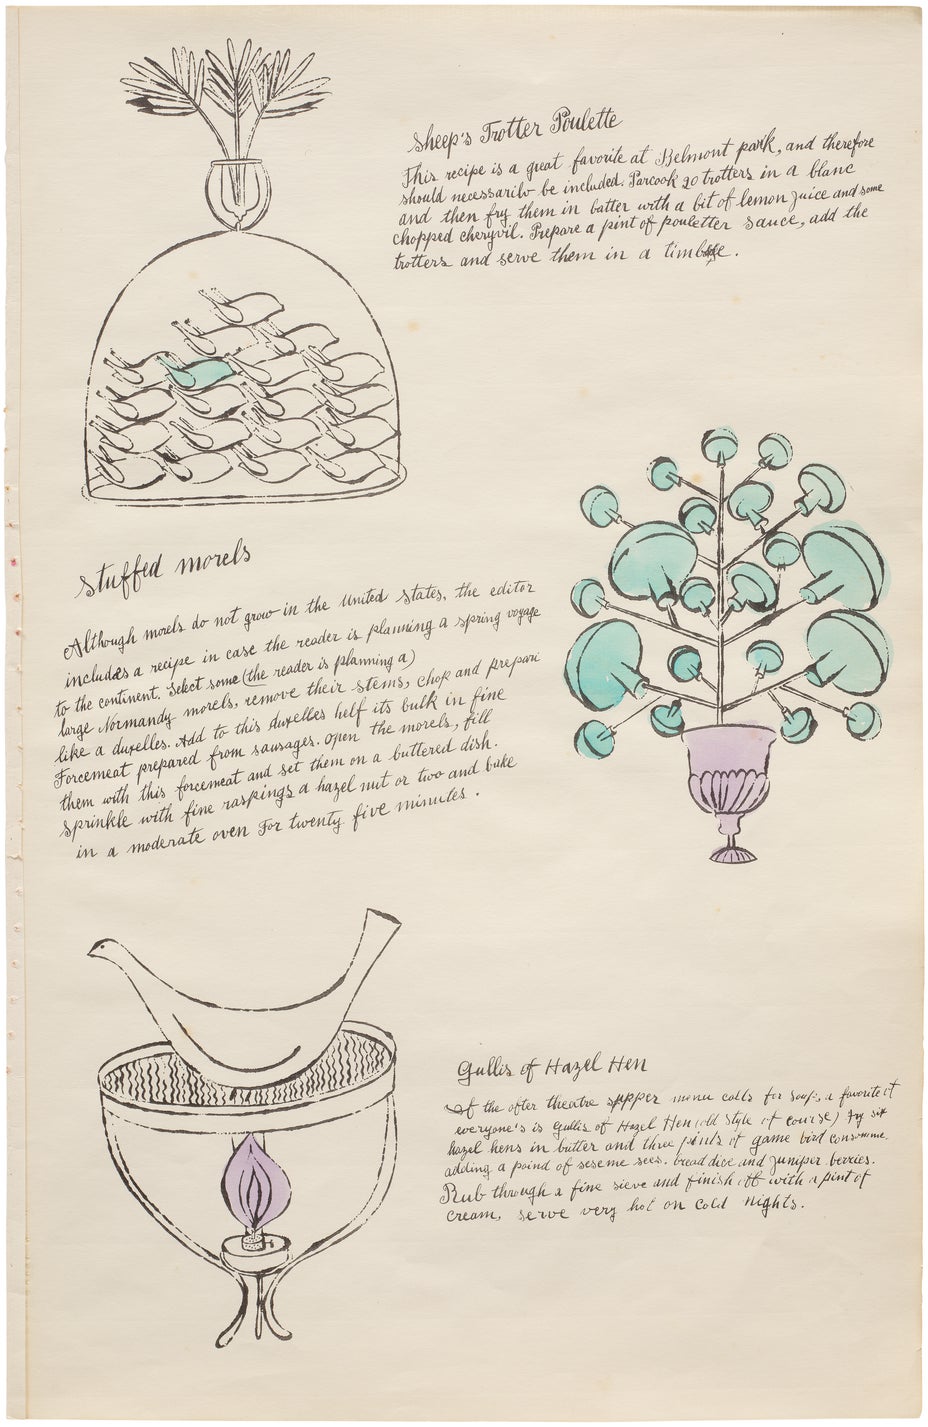 Sheep's Trotter Poulette
This recipe is a great favorite at Belmont park, and therefore
should necessarilv be included. Parcook 20 trotters in a blanc
and then fry them in batter with a bit of lemon juice and some
chopped cheryvil. Prepare a pint of pouletter sauce, add the
trotters and serve them in a
Stuffed morels
Although morels do not grow in the United States, the editor
includes a recipe in case the reader is planning a spring voyage
to the continent. Select some (the reader is planning a)
large Normandy morels, remove their stems, chop and prepari
like a duxelles. Add to this duxelles helf its bulk in fine
Forcemeat prepared from sausages. Open the morels, fill
them with this forcemeat and set them on a buttered dish.
Sprinkle with fine raspings a hazel nut or two and bake
in a moderate oven For twenty five minutes.
Gullis of Hazel Hen
If the after theatre supper menu calls for soup, a favorite of
everyone's is Gullis of Hazel Hen (old Style of course) Fry six
hazel hens in butter and three pints of game bird consomme,
adding a paind of seseme sees. bread dice and juniper berries.
Rub through a fine sieve and finish off with a pint of
cream, serve very hot on cold nights.